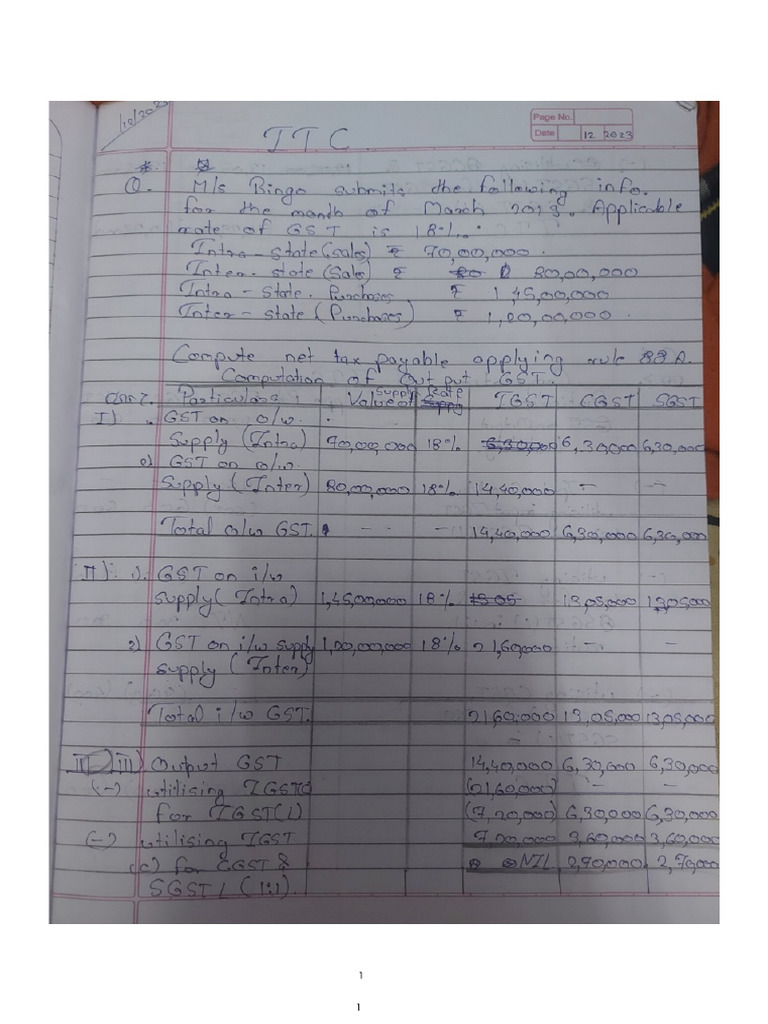 /10/202
Page No.
Date 12 2023
I T C
Q. M/s Bingo submits the following info.
for the month of March 2023. Applicable
rate of GST is 18%.
Intra-state (sales) ₹ 70,00,000.
Inter-state (Sale) ₹ 80,00,000
Intra-state. Purchases ₹ 1,45,00,000
Inter-state (Purchases) ₹ 1,20,00,000.
Compute net tax payable applying rule 88A.
Computation of Output GST.
Particulars Value of Supply Rate IGST CGST SGST
I) GST on o/w
Supply (Intra) 70,00,000 18% 6,30,000 6,30,000 6,30,000
2) GST on o/w.
Supply (Inter) 80,00,000 18% 14,40,000 - -
Total o/w GST. - - - 14,40,000 6,30,000 6,30,000
II) 1). GST on i/w
supply (Intra) 1,45,00,000 18% 13,05,000 13,05,000
2) GST on i/w supply 1,20,00,000 18% 21,60,000 - -
supply (Inter)
Total i/w GST. 2160,000 13,05,000 13,05,000
III) Output GST 14,40,000 6,30,000 6,30,000
(-) utilising IGST(c) (21,60,000) - -
for IGST(L) (7,20,000) 6,30,000 6,30,000
(-) utilising IGST 720,000 3,60,000 3,60,000
(c) for CGST & NIL 2,70,000 2,70,000
SGST L (1:1).
1
1